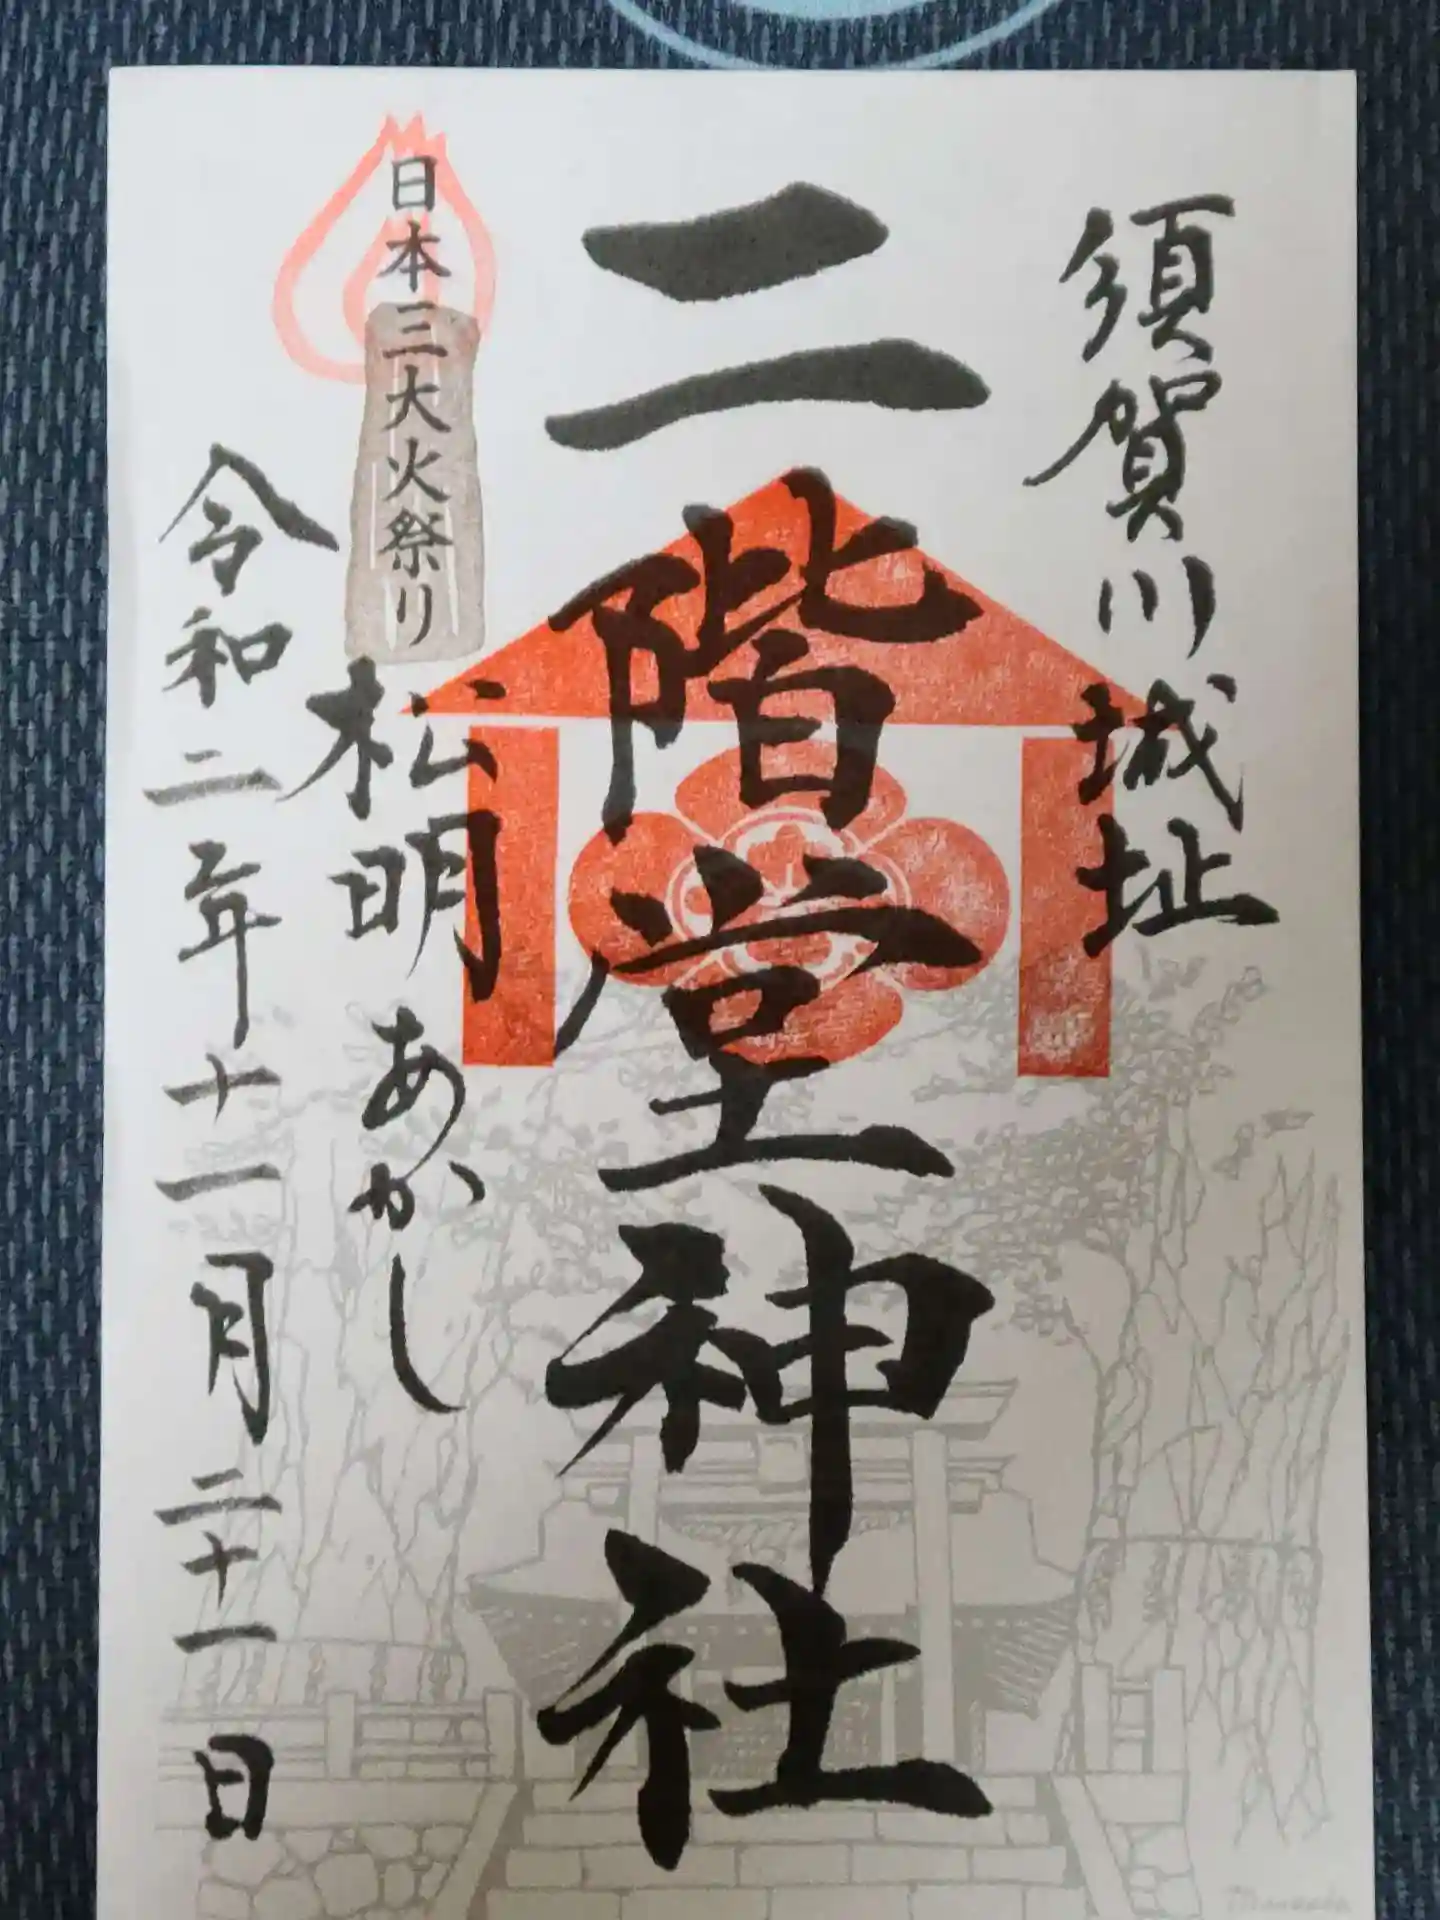 須賀川城址
二階堂神社
日本三大火祭り
松明あかし
令和二年十一月二十一日